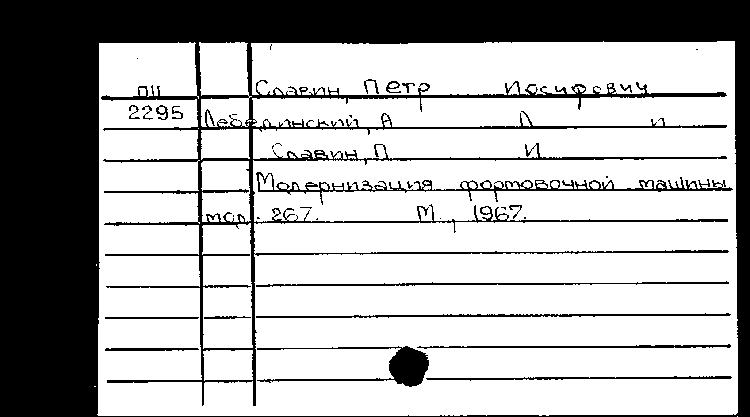 П11 Славин, Петр Иосифович
2295 Лебединский, А Л и
Славин, П И
Модернизация формовочной машины
мод. 267. М., 1967.